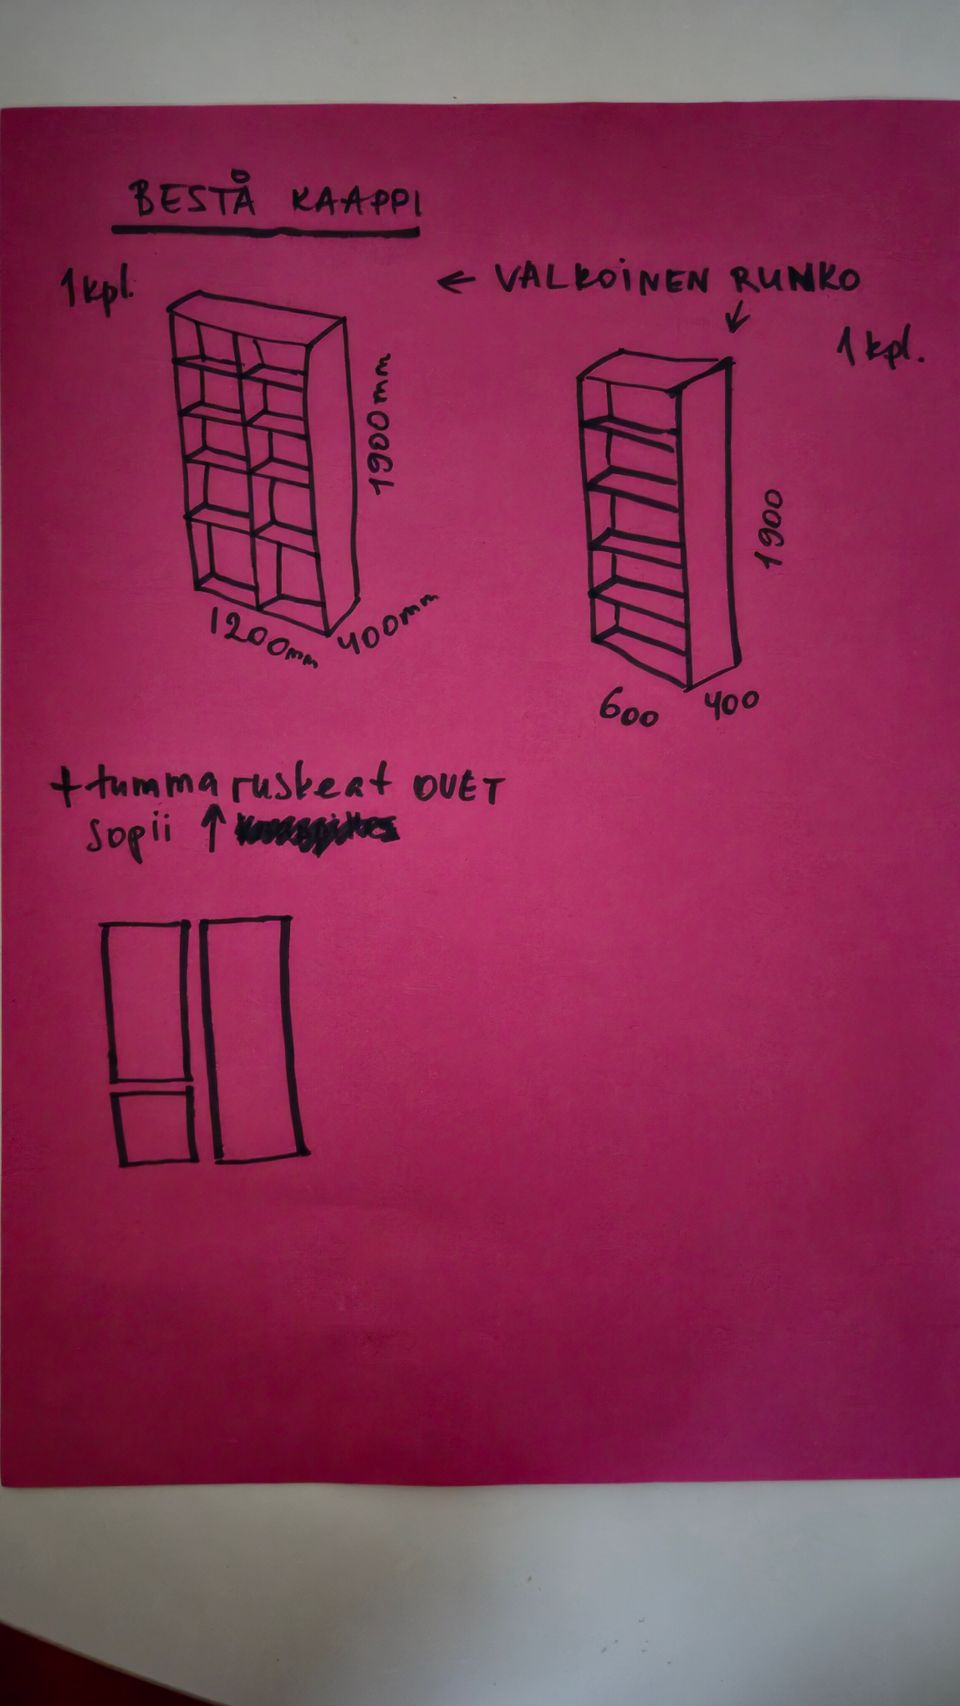 BESTÅ KAAPPI
1 kpl.
← VALKOINEN RUNKO
1 kpl.
1900mm
1200mm
400mm
1900
600
400
+ tumma ruskeat OVET
sopii ↑